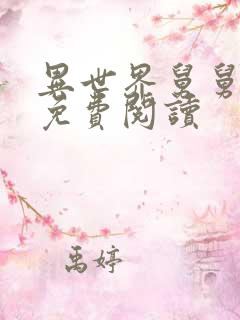 異世界舅舅
免費閱讀
禹婷